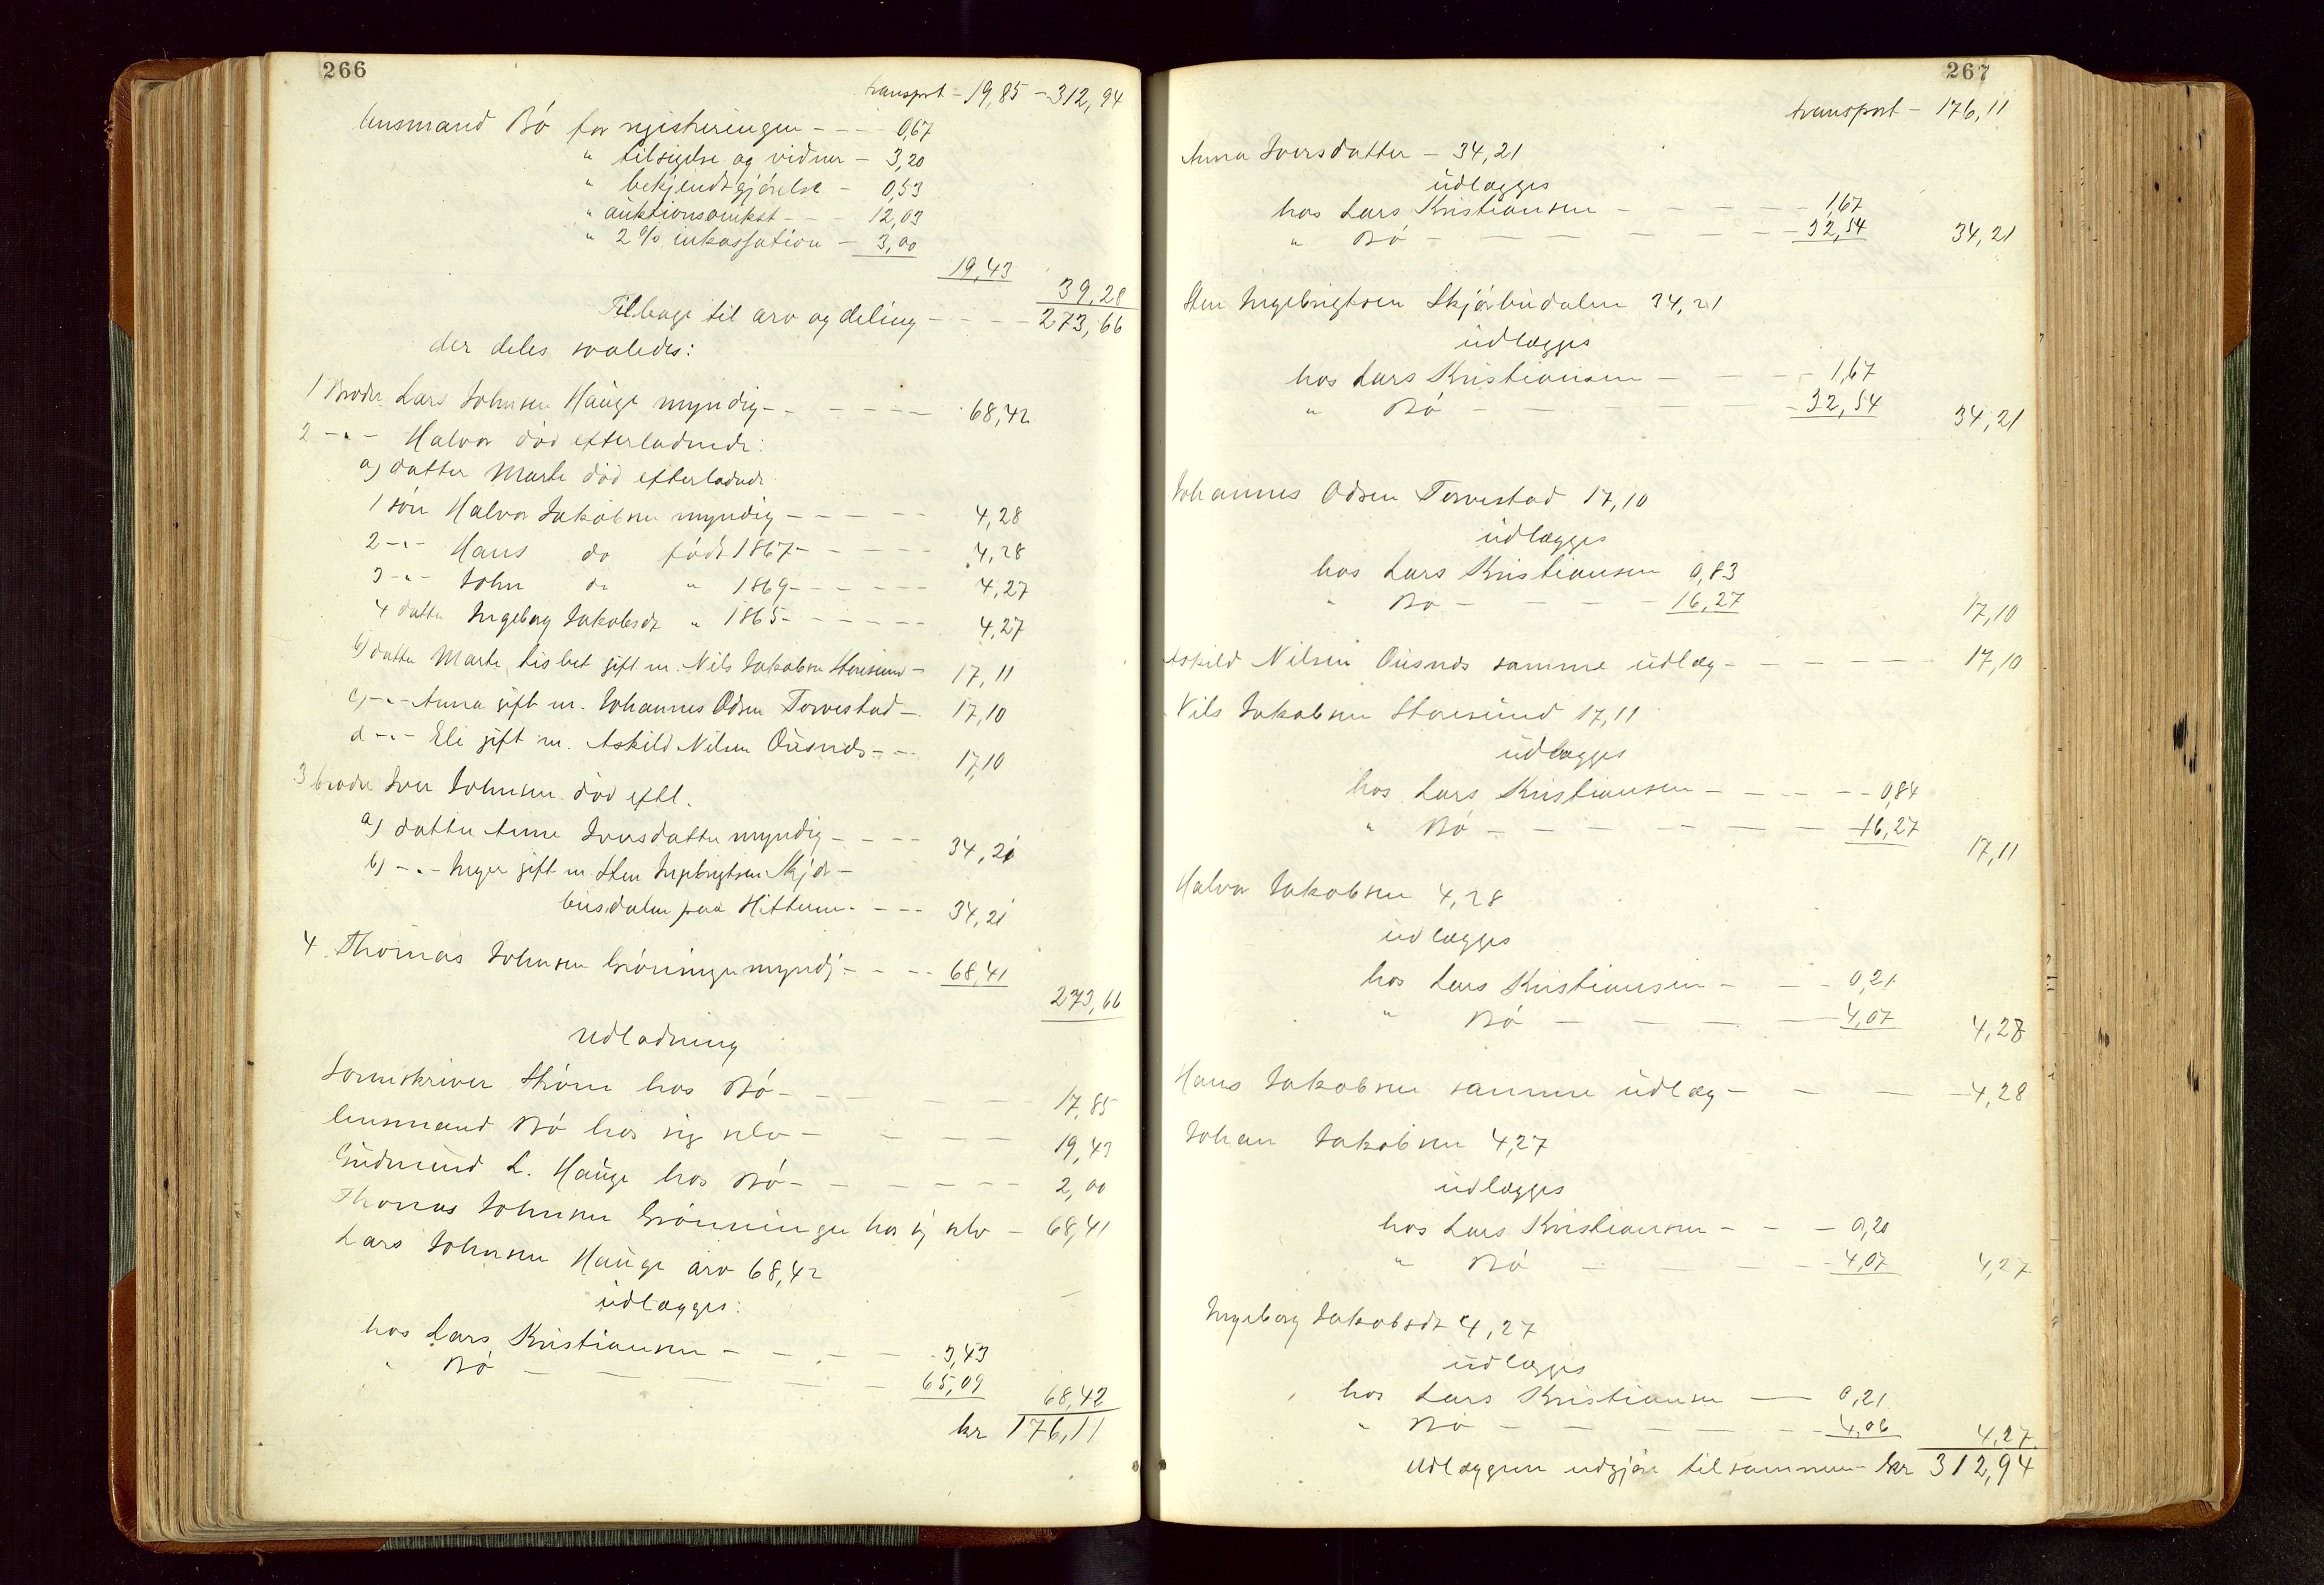 266
transport - 19,85 - 312,94
lensmand Bö for registreringen - - - 0,67
" tilsigelse og vidner - 3,20
" bekjendtgjörelse - 0,53
" auktionsomkst - - - 12,03
" 2 % inkassation - 3,00
19,43
39,28
Tilbage til arv og deling - - - - 273,66
der deles saaledes:
1 Broder Lars Johnsen Hauge myndig - - - - - - 68,42
2 -"- Halvor död efterladende:
a) datter Marte död efterladende
1 sön Halvor Jakobsen myndig - - - - - 4,28
2 -"- Hans do födt 1867 - - - - - 4,28
3 -"- John do " 1869 - - - - - 4,27
4 datter Ingeborg Jakobsdt " 1865 - - - - - - 4,27
b) datter Marte Lisbet gift m. Nils Jakobsen Storesund - 17,11
c) -"- Anna gift m. Johannes Odsen Torvestad - 17,10
d -"- Eli gift m. Askild Nilsen Öusnes - - - 17,10
3 broder Iver Johnsen död eftl.
a) datter Anne Iversdatter myndig - - - - 34,21
b) -"- Inger gift m Sten Ingebrigtsen Skjör-
busdalen paa Hitteren - - - - 34,21
4 Thomas Johnsen Grönningen myndi - - - - 68,41
273,66
Udlodning
Sorenskriver Ström hos Bö - - - - - - 17,85
lensmand Bö hos sig selv - - - - - 19,43
Gudmund L. Hauge hos Bö - - - - - - 2,00
Thomas Johnsen Grönningen hos sig selv - 68,41
Lars Johnsen Hauge arv 68,42
udlægges:
hos Lars Kristiansen - - - - - 3,43
" Bö - - - - - - 65,09
68,42
kr 176,11
267
transport - 176,11
Anna Iversdatter - 34,21
udlægges
hos Lars Kristiansen - - - - - 1,67
" Bö - - - - - - - 32,54 34,21
Sten Ingebrigtsen Skjörbudalen 34,21
udlægges
hos Lars Kristiansen - - - - 1,67
" Bö - - - - - 32,54 34,21
Johannes Odsen Torvestad 17,10
udlægges
hos Lars Kristiansen 0,83
" Bö - - - - 16,27 17,10
Askild Nilsen Öusnes samme udlæg - - - - - - 17,10
Nils Jakobsen Storesund 17,11
udlægges
hos Lars Kristiansen - - - - - 0,84
" Bö - - - - - - 16,27
17,11
Halvor Jakobsen 4,28
udlægges
hos Lars Kristiansen - - - 0,21
" Bö - - - - 4,07 4,28
Hans Jakobsen samme udlæg - - - - - 4,28
Johan Jakobsen 4,27
udlægges
hos Lars Kristiansen - - - 0,20
" Bö - - - - 4,07 4,27
Ingeborg Jakobsdt 4,27
udlægges
hos Lars Kristiansen - - 0,21
" Bö - - - - - - 4,06 4,27
Udlæggene udgjör tilsammen - kr 312,94